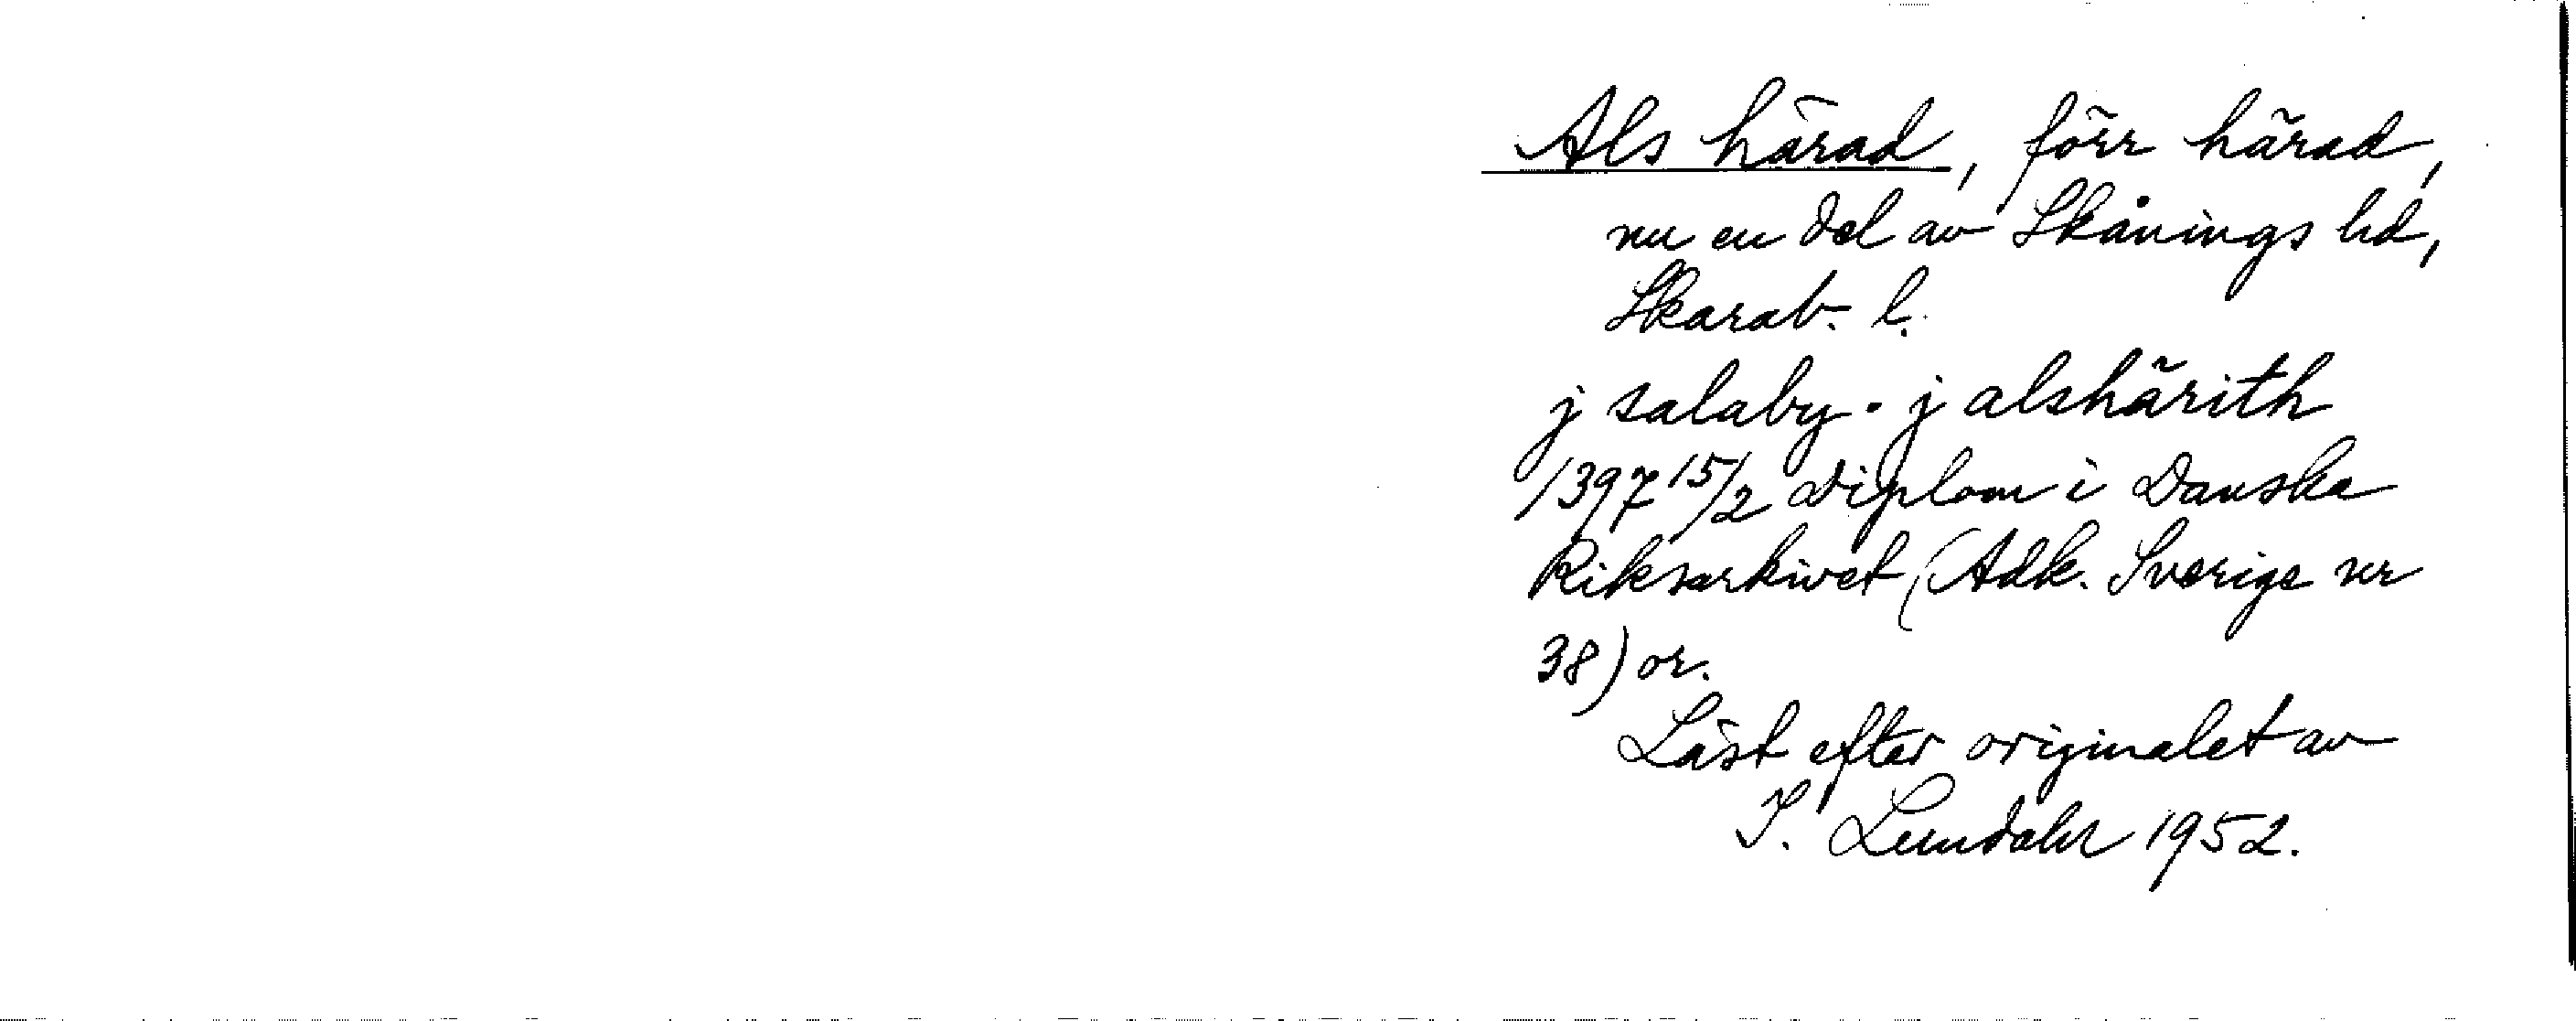 Als härad, förr härad,
nu en del av Skånings hd,
Skarab. l.
j salaby · j alshärith
1397 15/2 Diplom i Danska
Riksarkivet (Adk. Sverige nr
38) or.
Läst efter originalet av
I. Lundahl 1952.